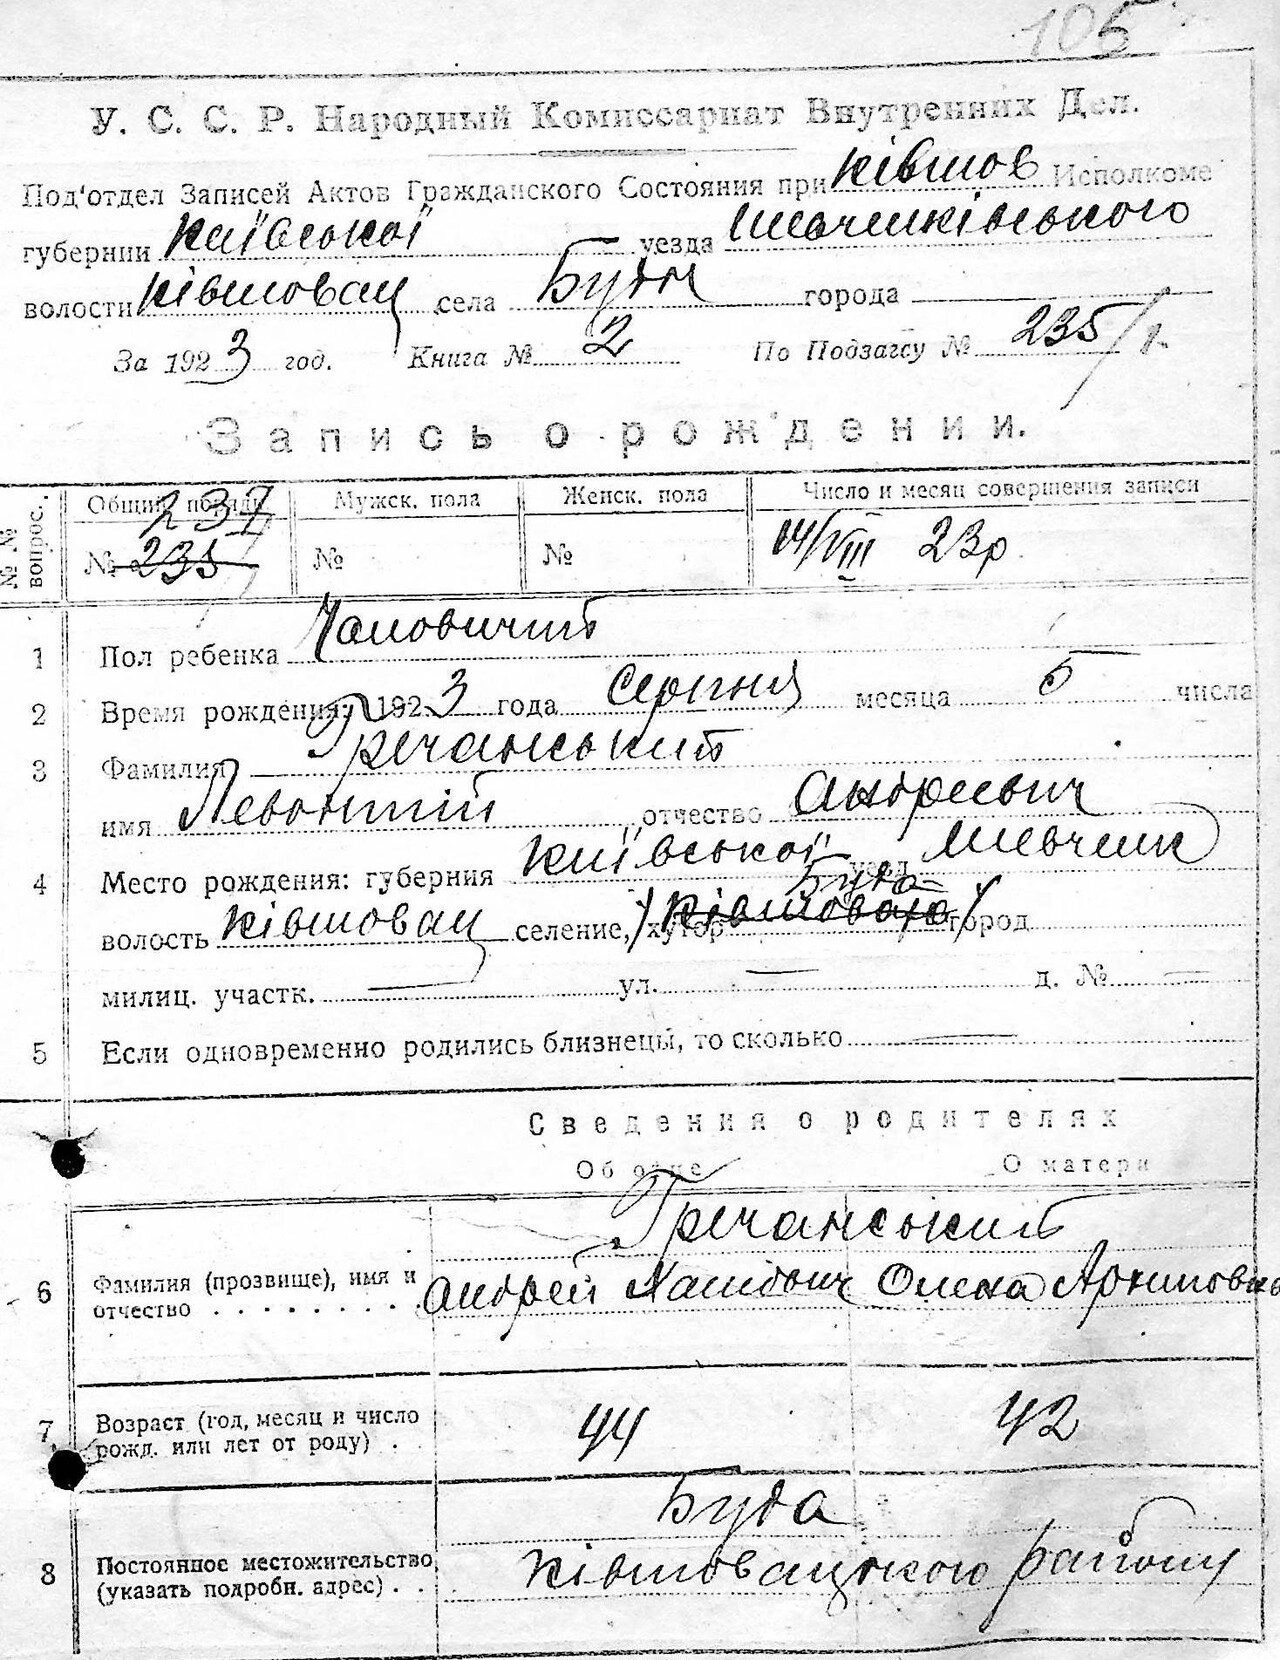 105
У. С. С. Р. Народный Комиссариат Внутренних Дел.
Под'отдел Записей Актов Гражданского Состояния при Ківшов Исполкоме
губернии Київської уезда Шевченківського
волости Ківшовац села Буди города
За 1923 год. Книга № 2 По Подзагсу № 235/
Запись о рождении.
№ № вопрос. Общий порядк Мужск. пола Женск. пола Число и месяц совершения записи
237
№ 235 № № 14/VIII 23р
1 Пол ребенка Чоловичий
2 Время рождения: 1923 года Серпня месяца 5 числа
3 Фамилия Гречанський
имя Левонтій отчество Андреевич
4 Место рождения: губерния Київської уезд Шевченк
Буда
волость Ківшовац селение, хутор Ківшовата город
милиц. участк. — ул. — д. № —
5 Если одновременно родились близнецы, то сколько —
Сведения о родителях
Об отце О матери
Гречанський
6 Фамилия (прозвище), имя и отчество Андрей Олена Архиповна
7 Возраст (год, месяц и число рожд. или лет от роду) 44 42
Буда
8 Постоянное местожительство (указать подробн. адрес) Ківшовацького району